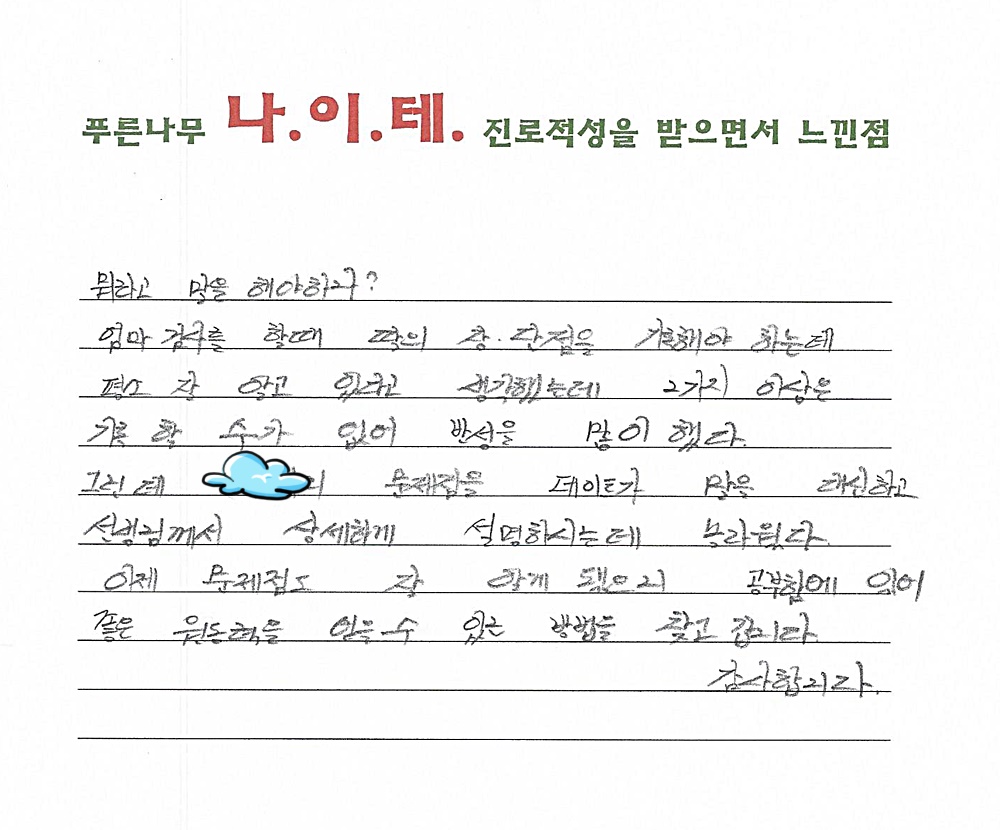 푸른나무 나.이.테. 진로적성을 받으면서 느낀점
뭐라고 말을 해야하지?
엄마 검사를 할때 딸의 장.단점을 기록해야 하는데
평소 잘 알고 있다고 생각했는데 2가지 이상은
기록 할 수가 없어 반성을 많이 했다.
그런데 문제점을 데이트가 말을 대신하고
선생님께서 상세하게 설명하시는데 놀라웠다.
이제 문제점도 잘 알게 됐으니 공부함에 있어
좋은 원동력을 얻을 수 있는 방법을 찾고 갑니다.
감사합니다.